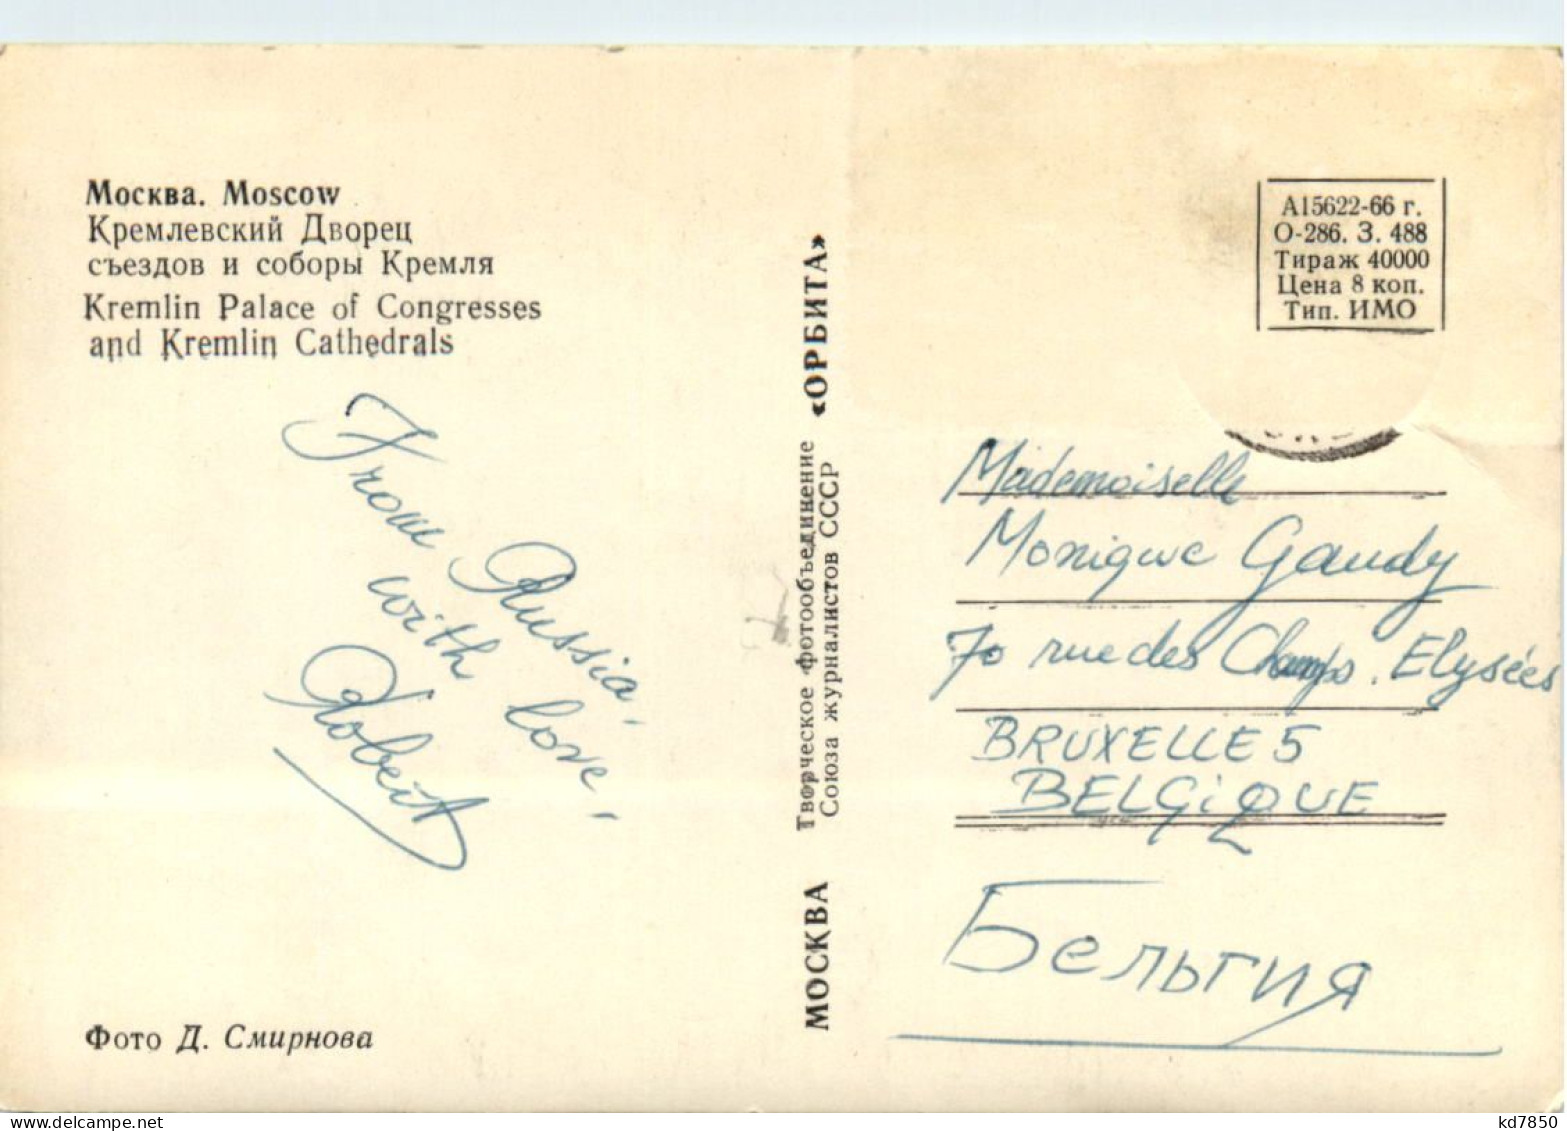 Москва. Moscow
Кремлевский Дворец
съездов и соборы Кремля
Kremlin Palace of Congresses
and Kremlin Cathedrals
From Russia,
with love,
Robert
Фото Д. Смирнова
МОСКВА Творческое фотообъединение «ОРБИТА»
Союза журналистов СССР
А15622-66 г.
О-286. З. 488
Тираж 40000
Цена 8 коп.
Тип. ИМО
Mademoiselle
Monique Gaudy
70 rue des Champs. Elysées
BRUXELLE 5
BELGiQUE
Бельгия
kd7850